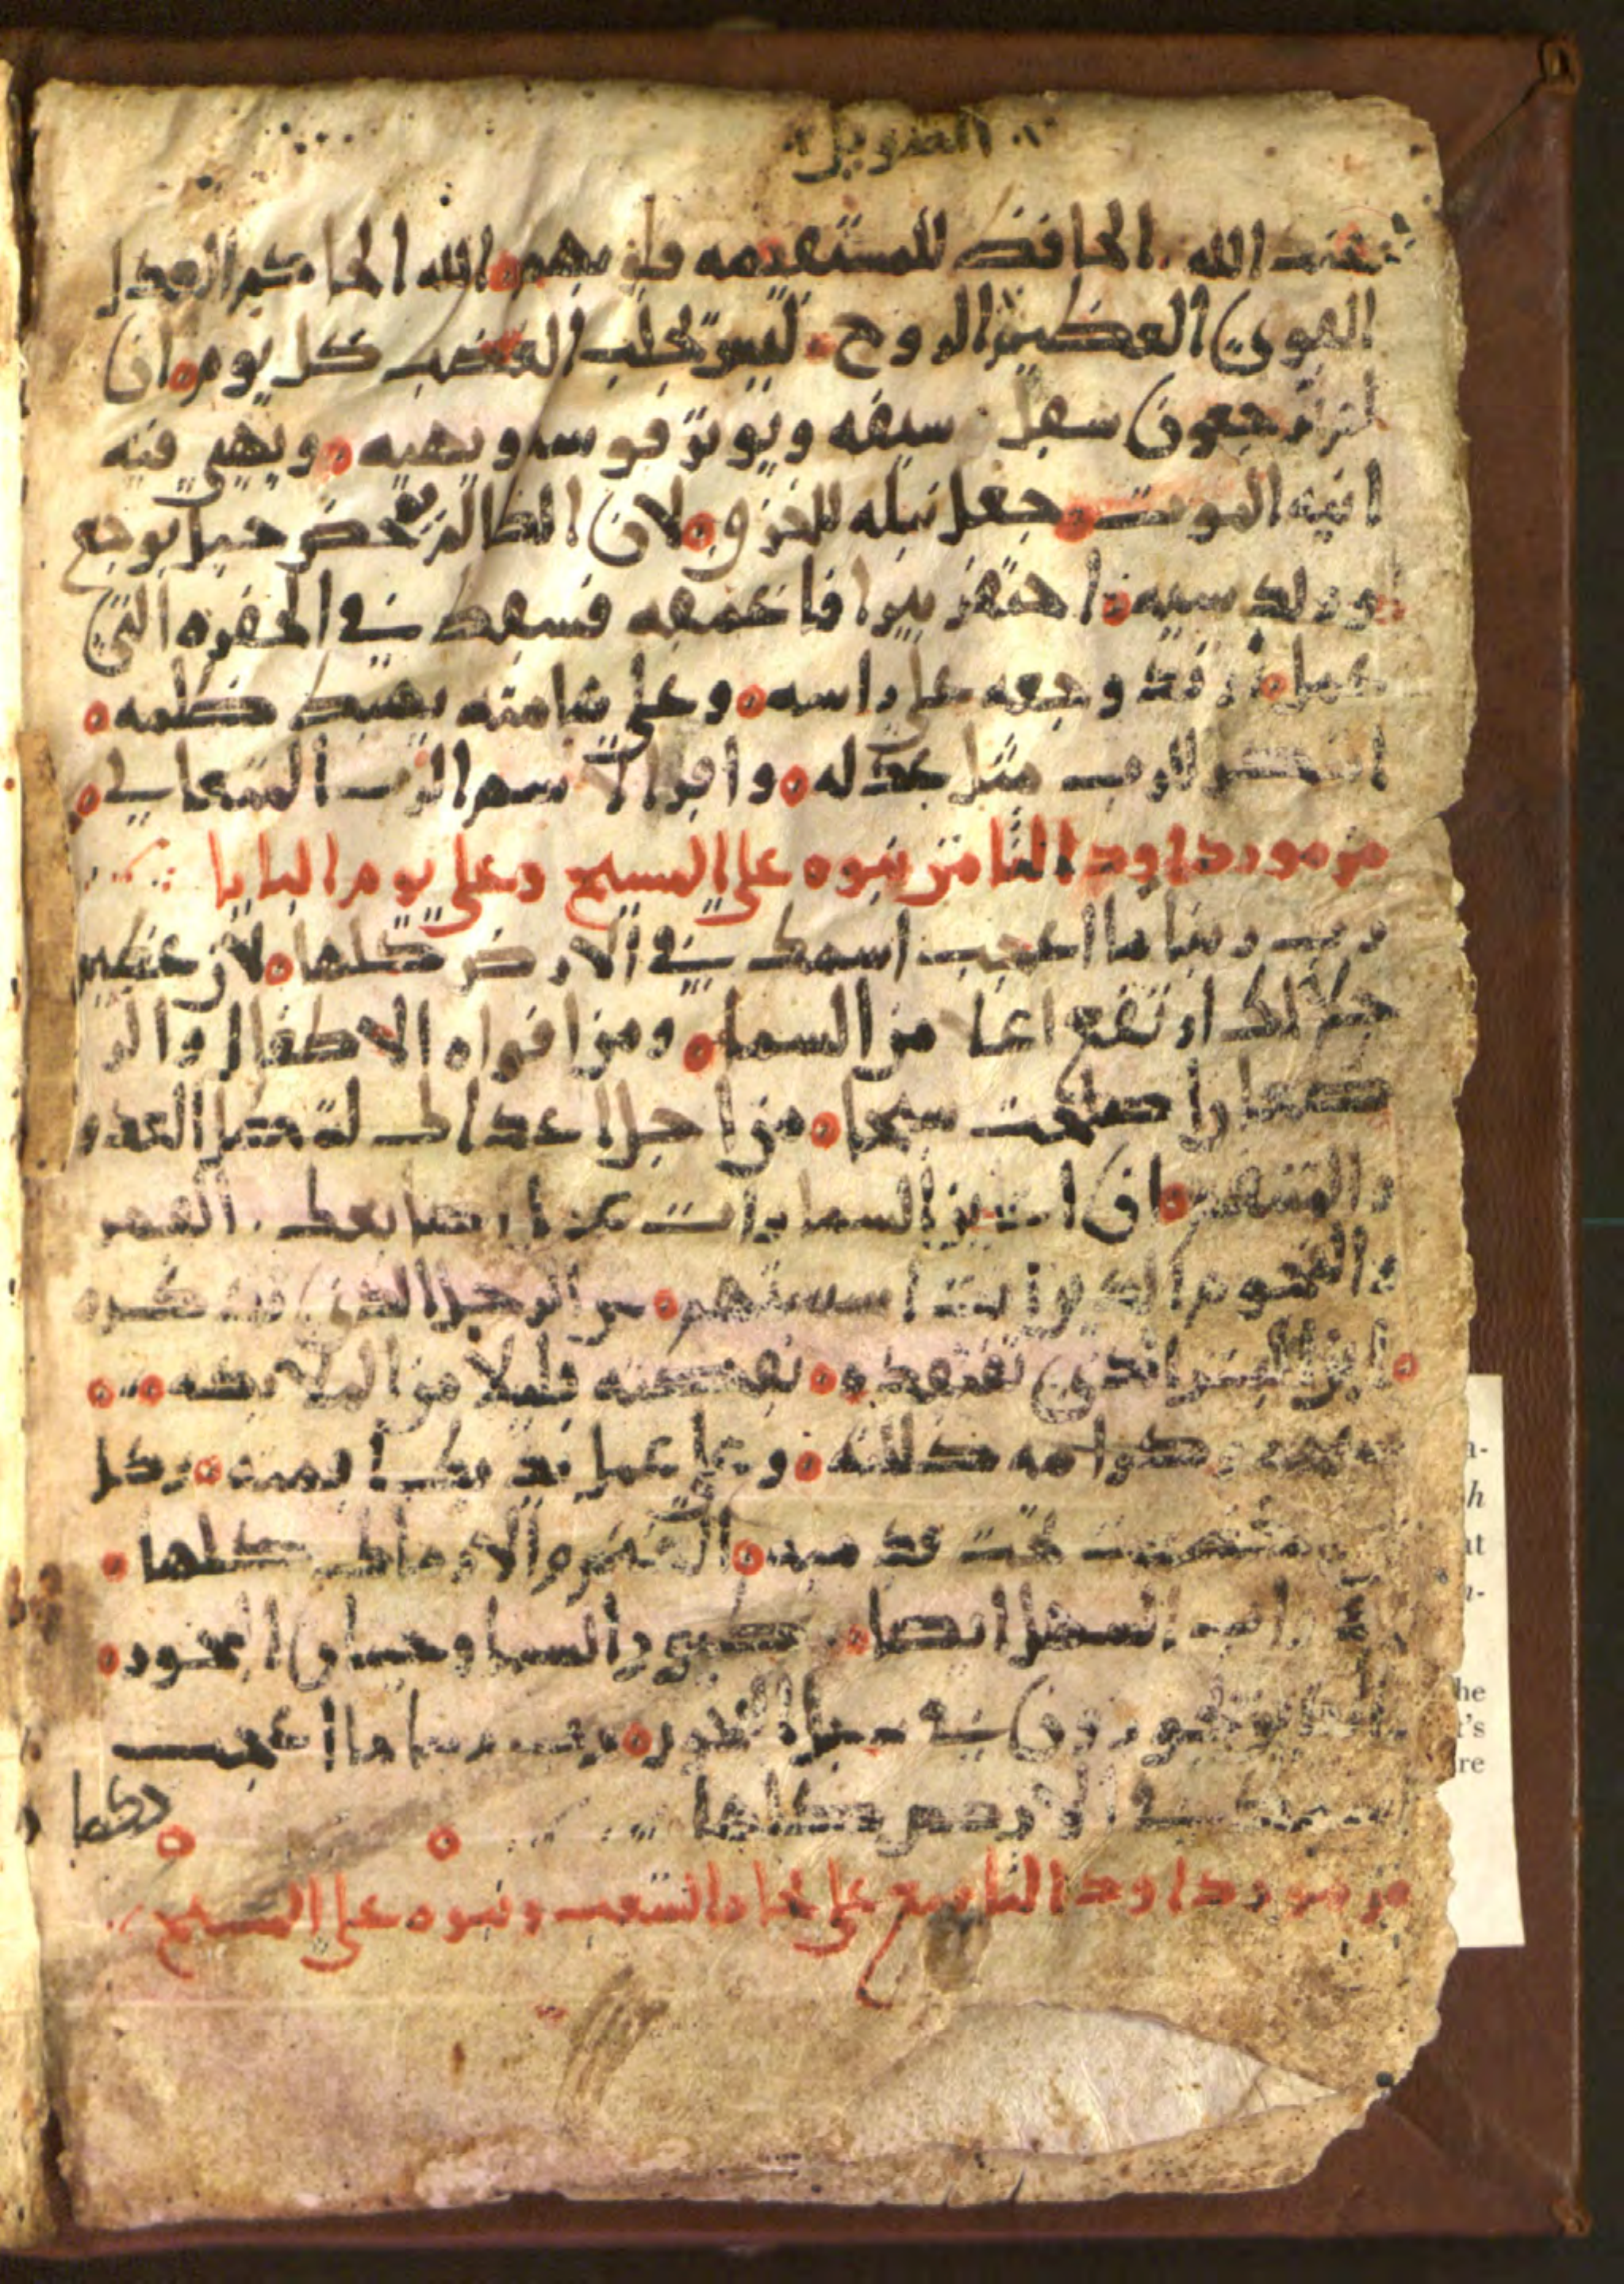 الطويل
عند الله الحافظ للمستقيمه قلوبهم الله الحاكم العدل
القوي العظيم الروح ليس يجلب الغضب كل يوم ان
لم ترجعون سقل سيفه ويوتر قوسه ويهيه ويهيي فيه
انيه الموت جعل نبله للحزق لان الظالم تمخض حبل بوجع
وولد سيه احتفر بيرا فاعمقه فسقط في الحفره التي
عمل وجعه علي راسه وعلي هامته يهبط ظلمه
اشكر للرب مثل عدله واقرا لاسم الرب المتعالي
مزمور داود الثامن نبوه علي المسيح وعلي يوم البابا
رب ربنا ما اعجب اسمك في الارض كلها لان عظيم
جلالك ارتفع اعلا من السما ومن افواه الاطفال والر
ضعا اصلحت سبحا من اجل اعداك لتبطل العدو
والمنتقم اني اري السماوات عمل اصابعك القمر
والنجوم الذين انت اسستهم من الرجل الذي ذكره
ابن البشر الذي تفتقده نقصته قليلا من الملايكه
وكرامه كللته وعلي عمل يديك اقمته وكل
تحت قدميه الغنم والبقر كلها
السهل ايضا طيور السما وحيتان البحور
في سبل البحور رب ربنا ما اعجب
اسمك في الارض كلها
مزمور داود التاسع علي نجاه الشعب ونبوه علي المسيح